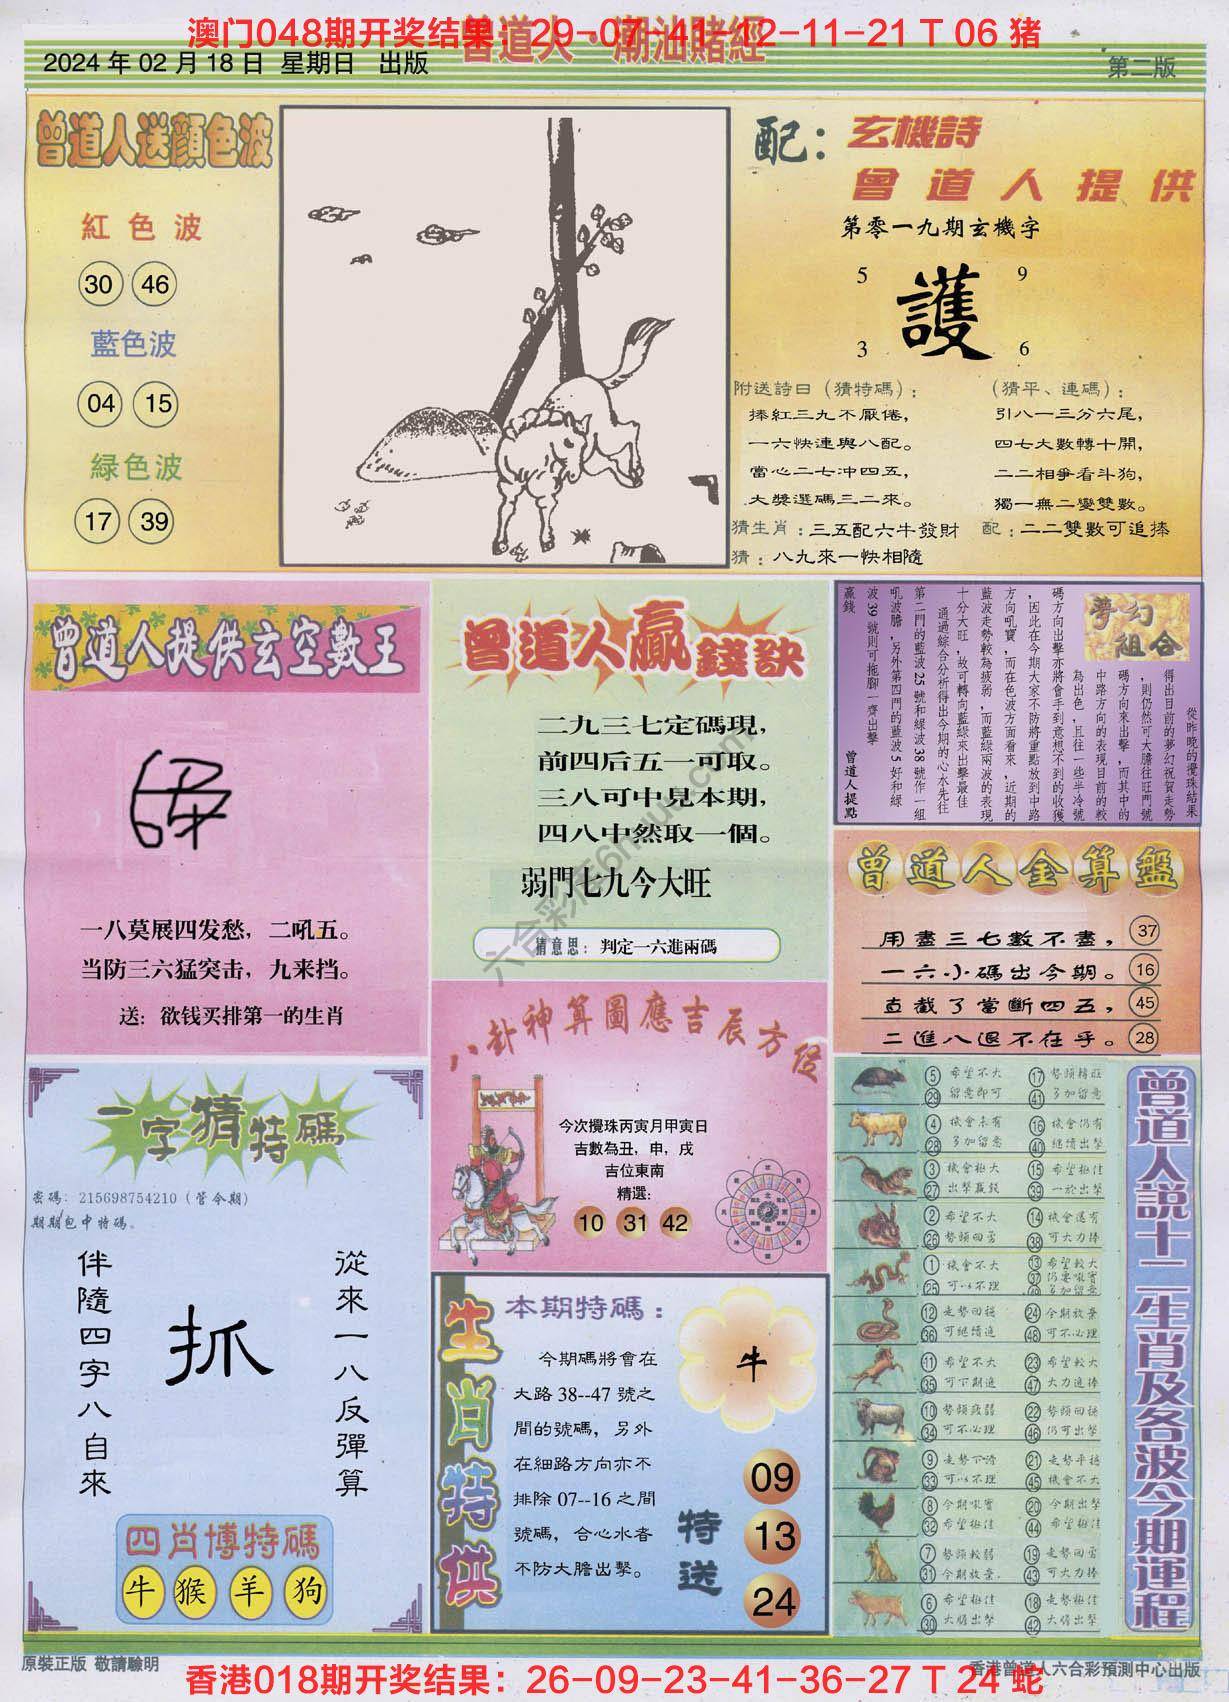 澳门048期开奖结果：29-07-41-12-11-21 T 06 猪
曾道人·潮汕賭經
2024年02月18日 星期日 出版
第二版
曾道人送顔色波
紅色波
30 46
藍色波
04 15
緑色波
17 39
配：玄機詩
曾道人提供
第零一九期玄機字
5 9
護
3 6
附送詩曰（猜特碼）：
捧紅三九不厭倦，
一六快連與八配。
當心二七冲四五，
大獎選碼三二來。
（猜平、連碼）：
引八一三分六尾，
四七大數轉十開，
二二相爭看斗狗，
獨一無二變雙數。
猜生肖：三五配六牛發財
配：二二雙數可追捧
猜：八九來一快相隨
曾道人提供玄空數王
一八莫展四发愁，二吼五。
当防三六猛突击，九来挡。
送：欲钱买排第一的生肖
曾道人贏錢訣
二九三七定碼現，
前四后五一可取。
三八可中見本期，
四八中然取一個。
弱門七九今大旺
猜意思：判定一六進兩碼
夢幻組合
從昨晚的攪珠結果
得出目前的夢幻祝賀走勢
，則仍然可大膽往旺門號
碼方向來出擊，而其中的
中路方向的表現目前的較
為出色，且往一些半冷號
碼方向出擊亦將會手到意想不到的收獲
，因此在今期大家不防將重點放到中路
方向吼寶，而在色波方面看來，近期的
藍波走勢較為疲弱，而藍綠兩波的表現
十分大旺，故可轉向藍綠來出擊最佳
通過綜合分析得出今期的心水先往
第二門的藍波25號和綠波38號作一組
吼波膽，另外第四門的藍波5好和綠
波39號則可拖腳一齊出擊
贏錢
曾道人提點
曾道人金算盤
用盡三七數不盡， 37
一六小碼出今期。 16
直截了當斷四五， 45
二進八退不在乎。 28
八卦神算圖應吉辰方位
今次攪珠丙寅月甲寅日
吉數為丑，申，戌
吉位東南
精選：
10 31 42
一字猜特碼
密碼：215698754210（管令期）
期期包中特碼。
從來一八反彈算
抓
伴隨四字八自來
四肖博特碼
牛 猴 羊 狗
生肖特供
本期特碼：
今期碼將會在
大路38--47號之
間的號碼，另外
在細路方向亦不
排除07--16之間
號碼，合心水者
不防大膽出擊。
牛
特送
09
13
24
曾道人説十二生肖及各波今期運程
5 希望不大 17 勢頭轉旺
29 留意即可 41 多加留意
4 機會未有 16 機會仍有
28 多加留意 40 繼續出擊
3 機會極大 15 希望極佳
27 出擊贏錢 39 一於出擊
2 希望不大 14 機會還有
26 勢頭回勇 38 可大力捧
1 機會不大 13 希望較大
25 可以不理 37
12 走勢回穩 24 今期放棄
36 可繼續追 48 可不必理
11 希望不大 23 希望較大
35 可下期追 47 大力追捧
10 勢頭疲弱 22 勢頭回穩
34 可不必理 46 仍可出擊
9 走勢下滑 21 走勢平穩
33 可以不理 45 機會不大
8 今期吼寶 20 今期出擊
32 希望極佳 44 希望極佳
7 勢頭較弱 19 走勢回勇
31 今期放棄. 43 可大力捧
6 希望極佳 18 走勢極佳
30 大膽出擊 42 大膽出擊
原裝正版 敬請驗明
香港曾道人六合彩預測中心出版
香港018期开奖结果：26-09-23-41-36-27 T 24 蛇